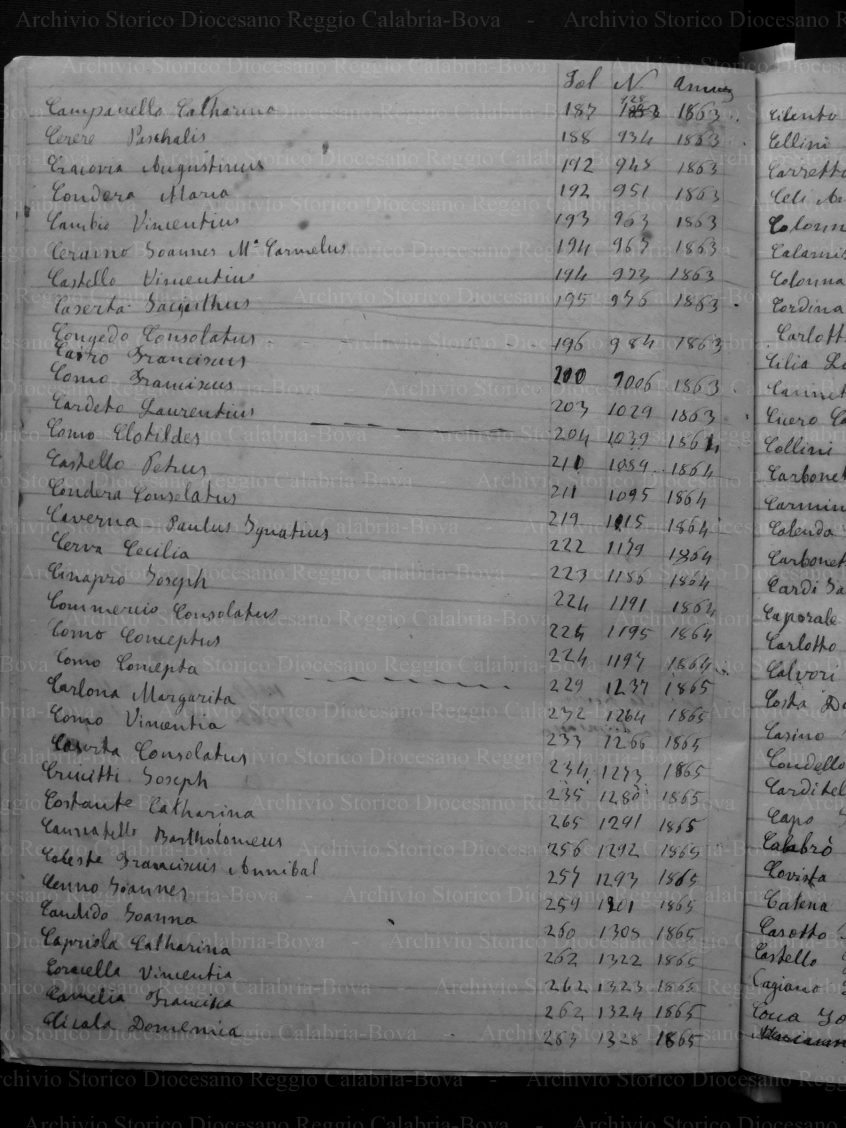 Fol N Annus
Campanello Catharina 187 928 1863
Cerere Paschalis 188 934 1863
Cracovia Augustinus 192 948 1863
Condera Maria 192 951 1863
Cambio Vincentius 193 963 1863
Ceraino Joannes Mª Carmelus 194 967 1863
Castello Vincentius 194 973 1863
Caserta Jacinthus 195 976 1863
Congedo Consolatus 196 984 1863
Cairo Franciscus
Como Franciscus 200 1006 1863
Cardeto Laurentius 203 1029 1863
Como Clotildes 204 1039 1864
Castello Petrus 210 1089 1864
Condera Consolatus 211 1095 1864
Caverna Paulus Ignatius 219 1115 1864
Cerva Cecilia 222 1179 1864
Cinapro Joseph 223 1186 1864
Commercio Consolatus 224 1191 1864
Como Conceptus 224 1195 1864
Como Concepta 224 1197 1864
Carlona Margarita 229 1237 1865
Como Vincentia 232 1264 1865
Caserta Consolatus 233 1266 1865
Crucitti Joseph 234 1273 1865
Costante Catharina 235 1280 1865
Bartholomeus 265 1291 1865
Celeste Franciscus Annibal 256 1292 1865
Cenno Joannes 257 1293 1865
Candido Joanna 259 1301 1865
Capriola Catharina 260 1308 1865
Coracella Vincentia 262 1322 1865
Camelia Francisca 262 1323 1865
Cicala Domenica 262 1324 1865
263 1328 1865
Cilento
Cellini
Carretto
Celi
Colonn
Calamis
Colonna
Cordina
Carlott
Cilia
Cannet
Cicero
Collini
Carbonet
Carmin
Calenda
Carbonet
Cardi
Caporale
Carlotto
Calvori
Costa
Casino
Condello
Carditel
Capo
Calabrò
Covista
Catena
Casotto
Castello
Cagiano
Cocca
Archivio Storico Diocesano Reggio Calabria-Bova - Archivio Storico Diocesano Reggio Calabria-Bova